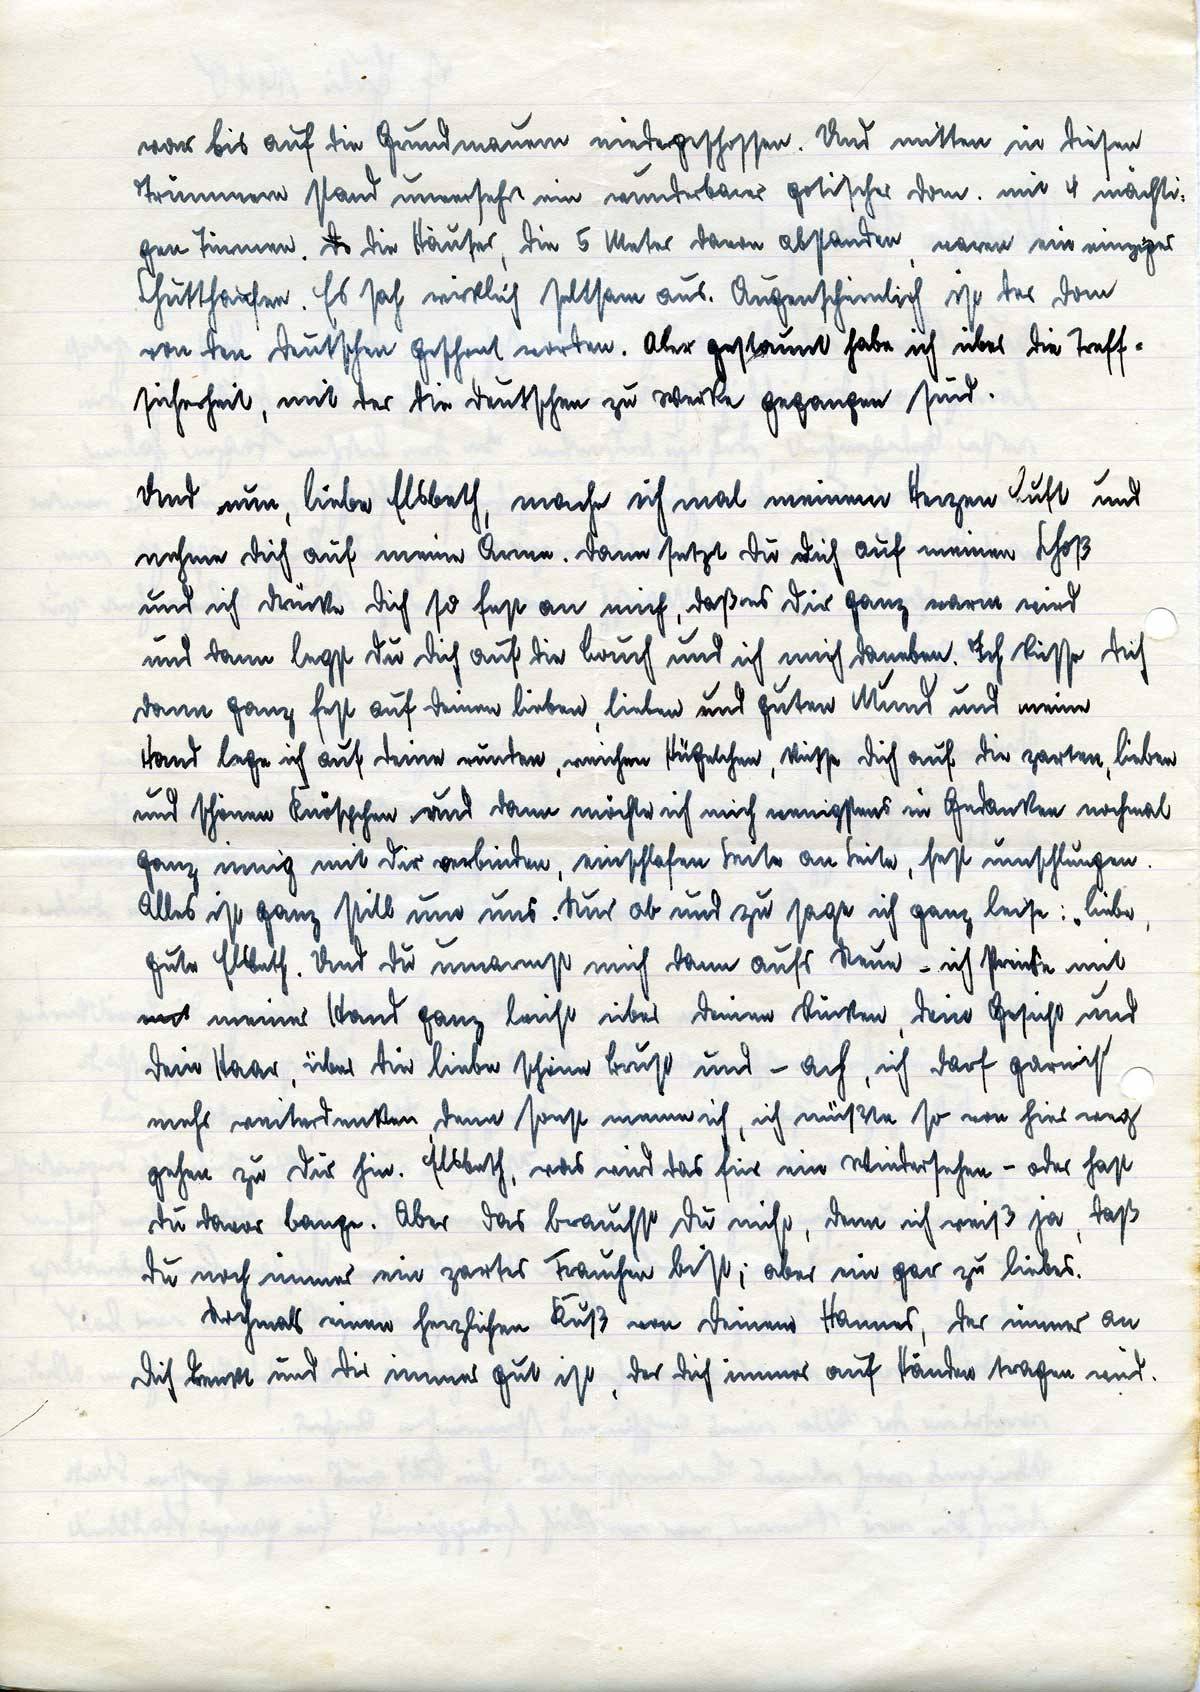 war bis auf die Grundmauern niedergeschossen. Und mitten in diesen
Trümmern stand unversehrt ein wunderbarer gotischer Dom. mit 4 mächti-
gen Türmen. Do die Häuser, die 5 Meter davon abstanden, waren ein einziger
Schutthaufen. Es sah wirklich seltsam aus. Augenscheinlich ist der Dom
von den Deutschen geschont worden. Aber gestaunt habe ich über die Treff-
sicherheit, mit der die Deutschen zu Werke gegangen sind.
Und nun, liebe Elsbeth, mache ich mal meinem Herzen Luft und
nehme Dich auf meine Arme. Dann setzt Du Dich auf meinen Schoß
und ich drücke Dich so fest an mich, daß es Dir ganz warm wird
und dann legst Du Dich auf die Couch und ich mich daneben. Ich küsse Dich
dann ganz fest auf Deinen lieben, lieben und guten Mund und meine
Hand lege ich auf Deine runden, weichen Hügelchen, küsse Dich auf die zarten, lieben
und schönen Knöspchen und dann möchte ich mich wenigstens in Gedanken nochmal
ganz innig mit Dir verbinden, einschlafen Seite an Seite, fest umschlungen.
Alles ist ganz still um uns. Nur ab und zu sage ich ganz leise: „liebe,
gute Elsbeth. Und Du umarmst mich dann aufs Neue - ich streiche mit
mit meiner Hand ganz leicht über Deinen Rücken, Dein Gesicht und
Dein Haar, über die liebe schöne Brust und - ach, ich darf garnicht
mehr weiterdenken, denn sonst meine ich, ich müßte so von hier weg
gehen zu Dir hin. Elsbeth, was wird das für ein Wiedersehen - oder hast
Du davor bange. Aber das brauchst Du nicht, denn ich weiß ja, daß
Du noch immer ein zartes Frauchen bist; aber ein gar zu liebes.
Nochmals einen herzlichen Kuß von Deinem Hannes, der immer an
Dich denkt und Dir immer gut ist, der Dich immer auf Händen tragen wird.